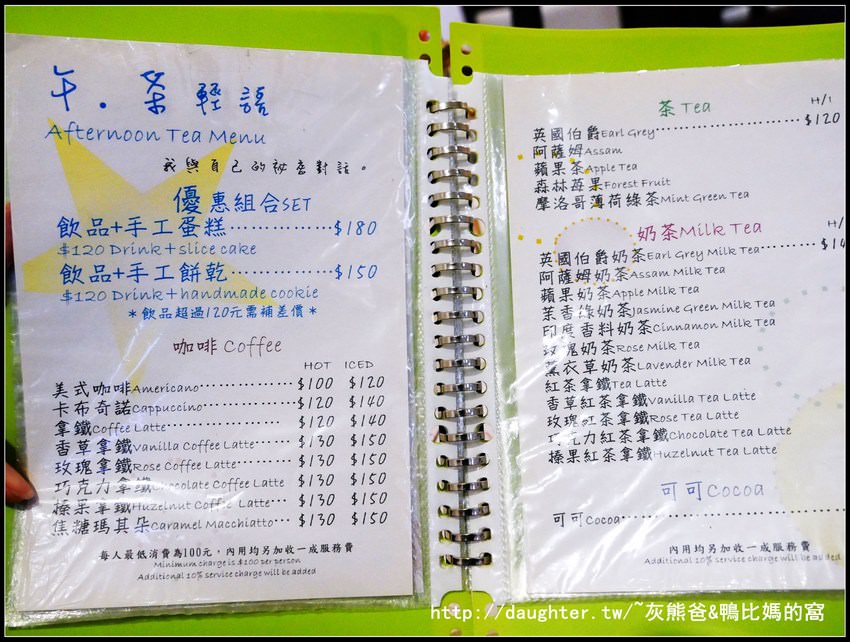 午．茶輕語
Afternoon Tea Menu
我與自己的祕密對話。
優惠組合SET
飲品+手工蛋糕··············$180
$120 Drink+slice cake
飲品+手工餅乾··············$150
$120 Drink+handmade cookie
*飲品超過120元需補差價*
咖啡 Coffee
HOT ICED
美式咖啡Americano··············$100 $120
卡布奇諾Cappuccino··············$120 $140
拿鐵Coffee Latte··············$120 $140
香草拿鐵Vanilla Coffee Latte······$130 $150
玫瑰拿鐵Rose Coffee Latte······$130 $150
巧克力拿鐵Chocolate Coffee Latte $130 $150
榛果拿鐵Huzelnut Coffee Latte···$130 $150
焦糖瑪其朵Caramel Macchiatto···$130 $150
每人最低消費為100元，內用均另加收一成服務費
Minimum charge is $100 per person
Additional 10% service charge will be added
茶 Tea
H/I
英國伯爵Earl Grey····················$120
阿薩姆Assam
蘋果茶Apple Tea
森林莓果Forest Fruit
摩洛哥薄荷綠茶Mint Green Tea
奶茶Milk Tea
H/
英國伯爵奶茶Earl Grey Milk Tea········$14
阿薩姆奶茶Assam Milk Tea
蘋果奶茶Apple Milk Tea
茉香綠奶茶Jasmine Green Milk Tea
印度香料奶茶Cinnamon Milk Tea
玫瑰奶茶Rose Milk Tea
薰衣草奶茶Lavender Milk Tea
紅茶拿鐵Tea Latte
香草紅茶拿鐵Vanilla Tea Latte
玫瑰紅茶拿鐵Rose Tea Latte
巧克力紅茶拿鐵Chocolate Tea Latte
榛果紅茶拿鐵Huzelnut Tea Latte
可可Cocoa
可可Cocoa····························
內用均另加收一成服務費
Additional 10% service charge will be added
http://daughter.tw/~灰熊爸&鴨比媽的窩